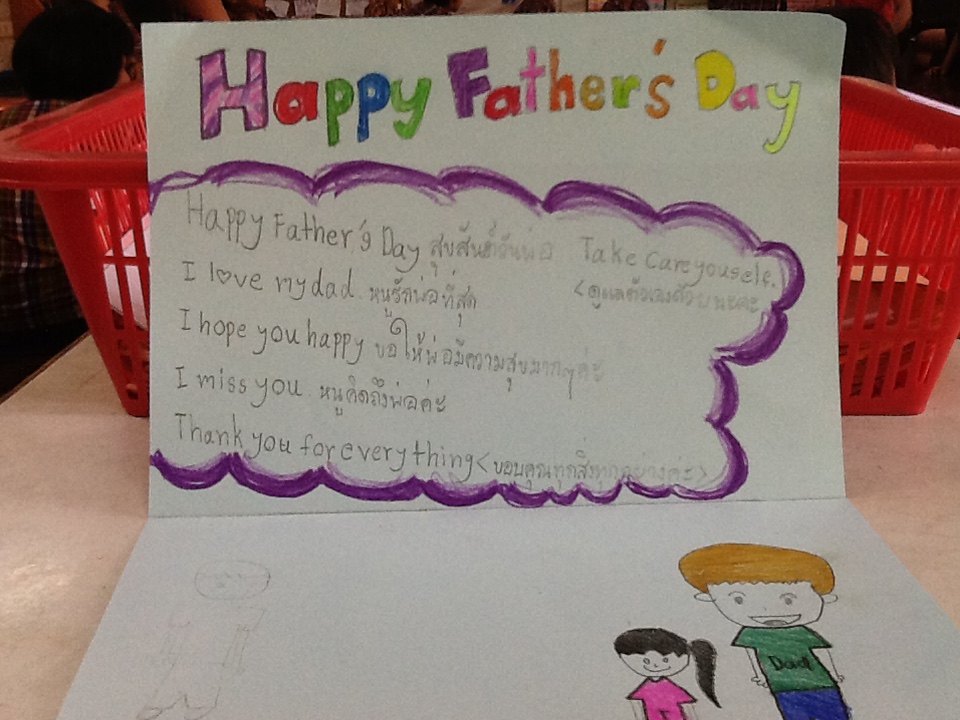 Happy Father's Day
Happy Father's Day สุขสันต์วันพ่อ Take care youself.
I love my dad. หนูรักพ่อที่สุด <ดูแลตัวเองด้วยนะคะ
I hope you happy ขอให้พ่อมีความสุขมากๆค่ะ
I miss you. หนูคิดถึงพ่อค่ะ
Thank you for everything <ขอบคุณทุกสิ่งทุกอย่างค่ะ>
Dad